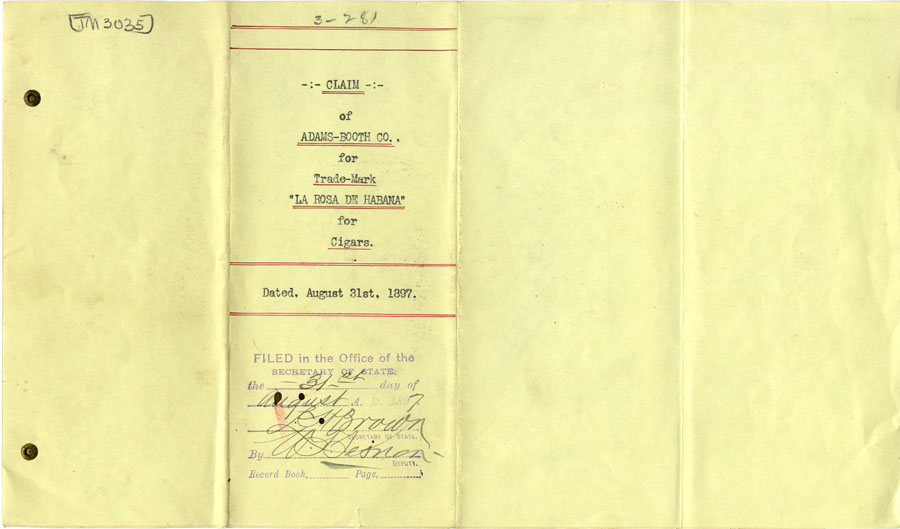 TM 3035
3-281
-:- CLAIM -:-
of
ADAMS-BOOTH CO.,
for
Trade-Mark
"LA ROSA DE HABANA"
for
Cigars.
Dated, August 31st, 1897.
FILED in the Office of the
SECRETARY OF STATE,
the -31-st day of
August A. D. 1897
L. H. Brown
SECRETARY OF STATE.
By
DEPUTY.
Record Book, Page,